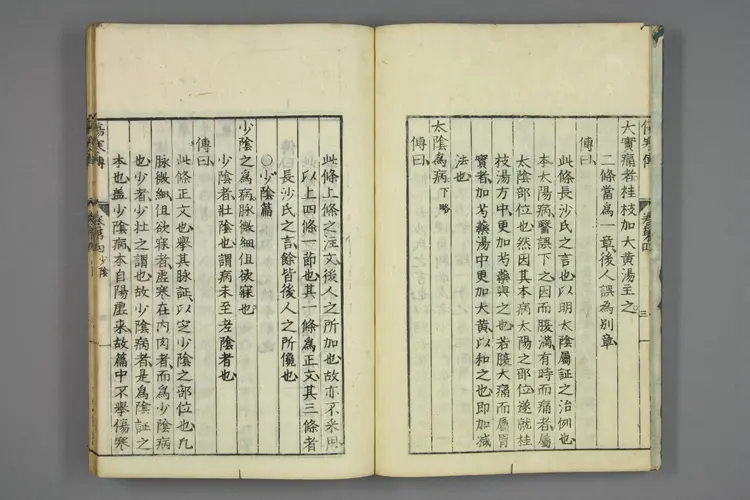 大實痛者桂枝加大黄湯主之
二條當爲一章後人誤為別章
傳曰
此條長沙氏之言也以明太陰屬証之治例也
本太陽病醫誤下之因而腹滿有時而痛者屬
太陰部位也然因其本病太陽之部位遂就桂
枝湯方中更加芍藥與之也若腹大痛而屬胃
實者加芍藥湯中更加大黄以和之也即加減
法也
太陰為病下略
傳曰
此條上條之注文後人之所加也故亦不采用
此以上四條一節也其一條為正文其三條者
長沙氏之言餘皆後人之所攙也
○少陰篇
少陰之為病脉微細但欲寐也
少陰者壯陰也謂病未至老陰者也
傳曰
此條正文也舉其脉証以定少陰之部位也凢
脉微細但欲寐者虛寒在内肉者而為少陰病
也少者少壯之謂也故少陰病者是為陰証之
本也蓋少陰病本自陽虛來故篇中不擧傷寒
傷寒傳
卷第四
少陰